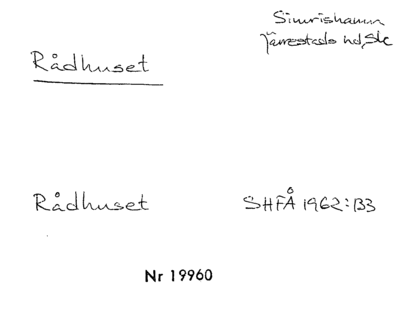 Simrishamn
Järrestads hd, Ske
Rådhuset
Rådhuset SHFÅ 1962:133
Nr 19960